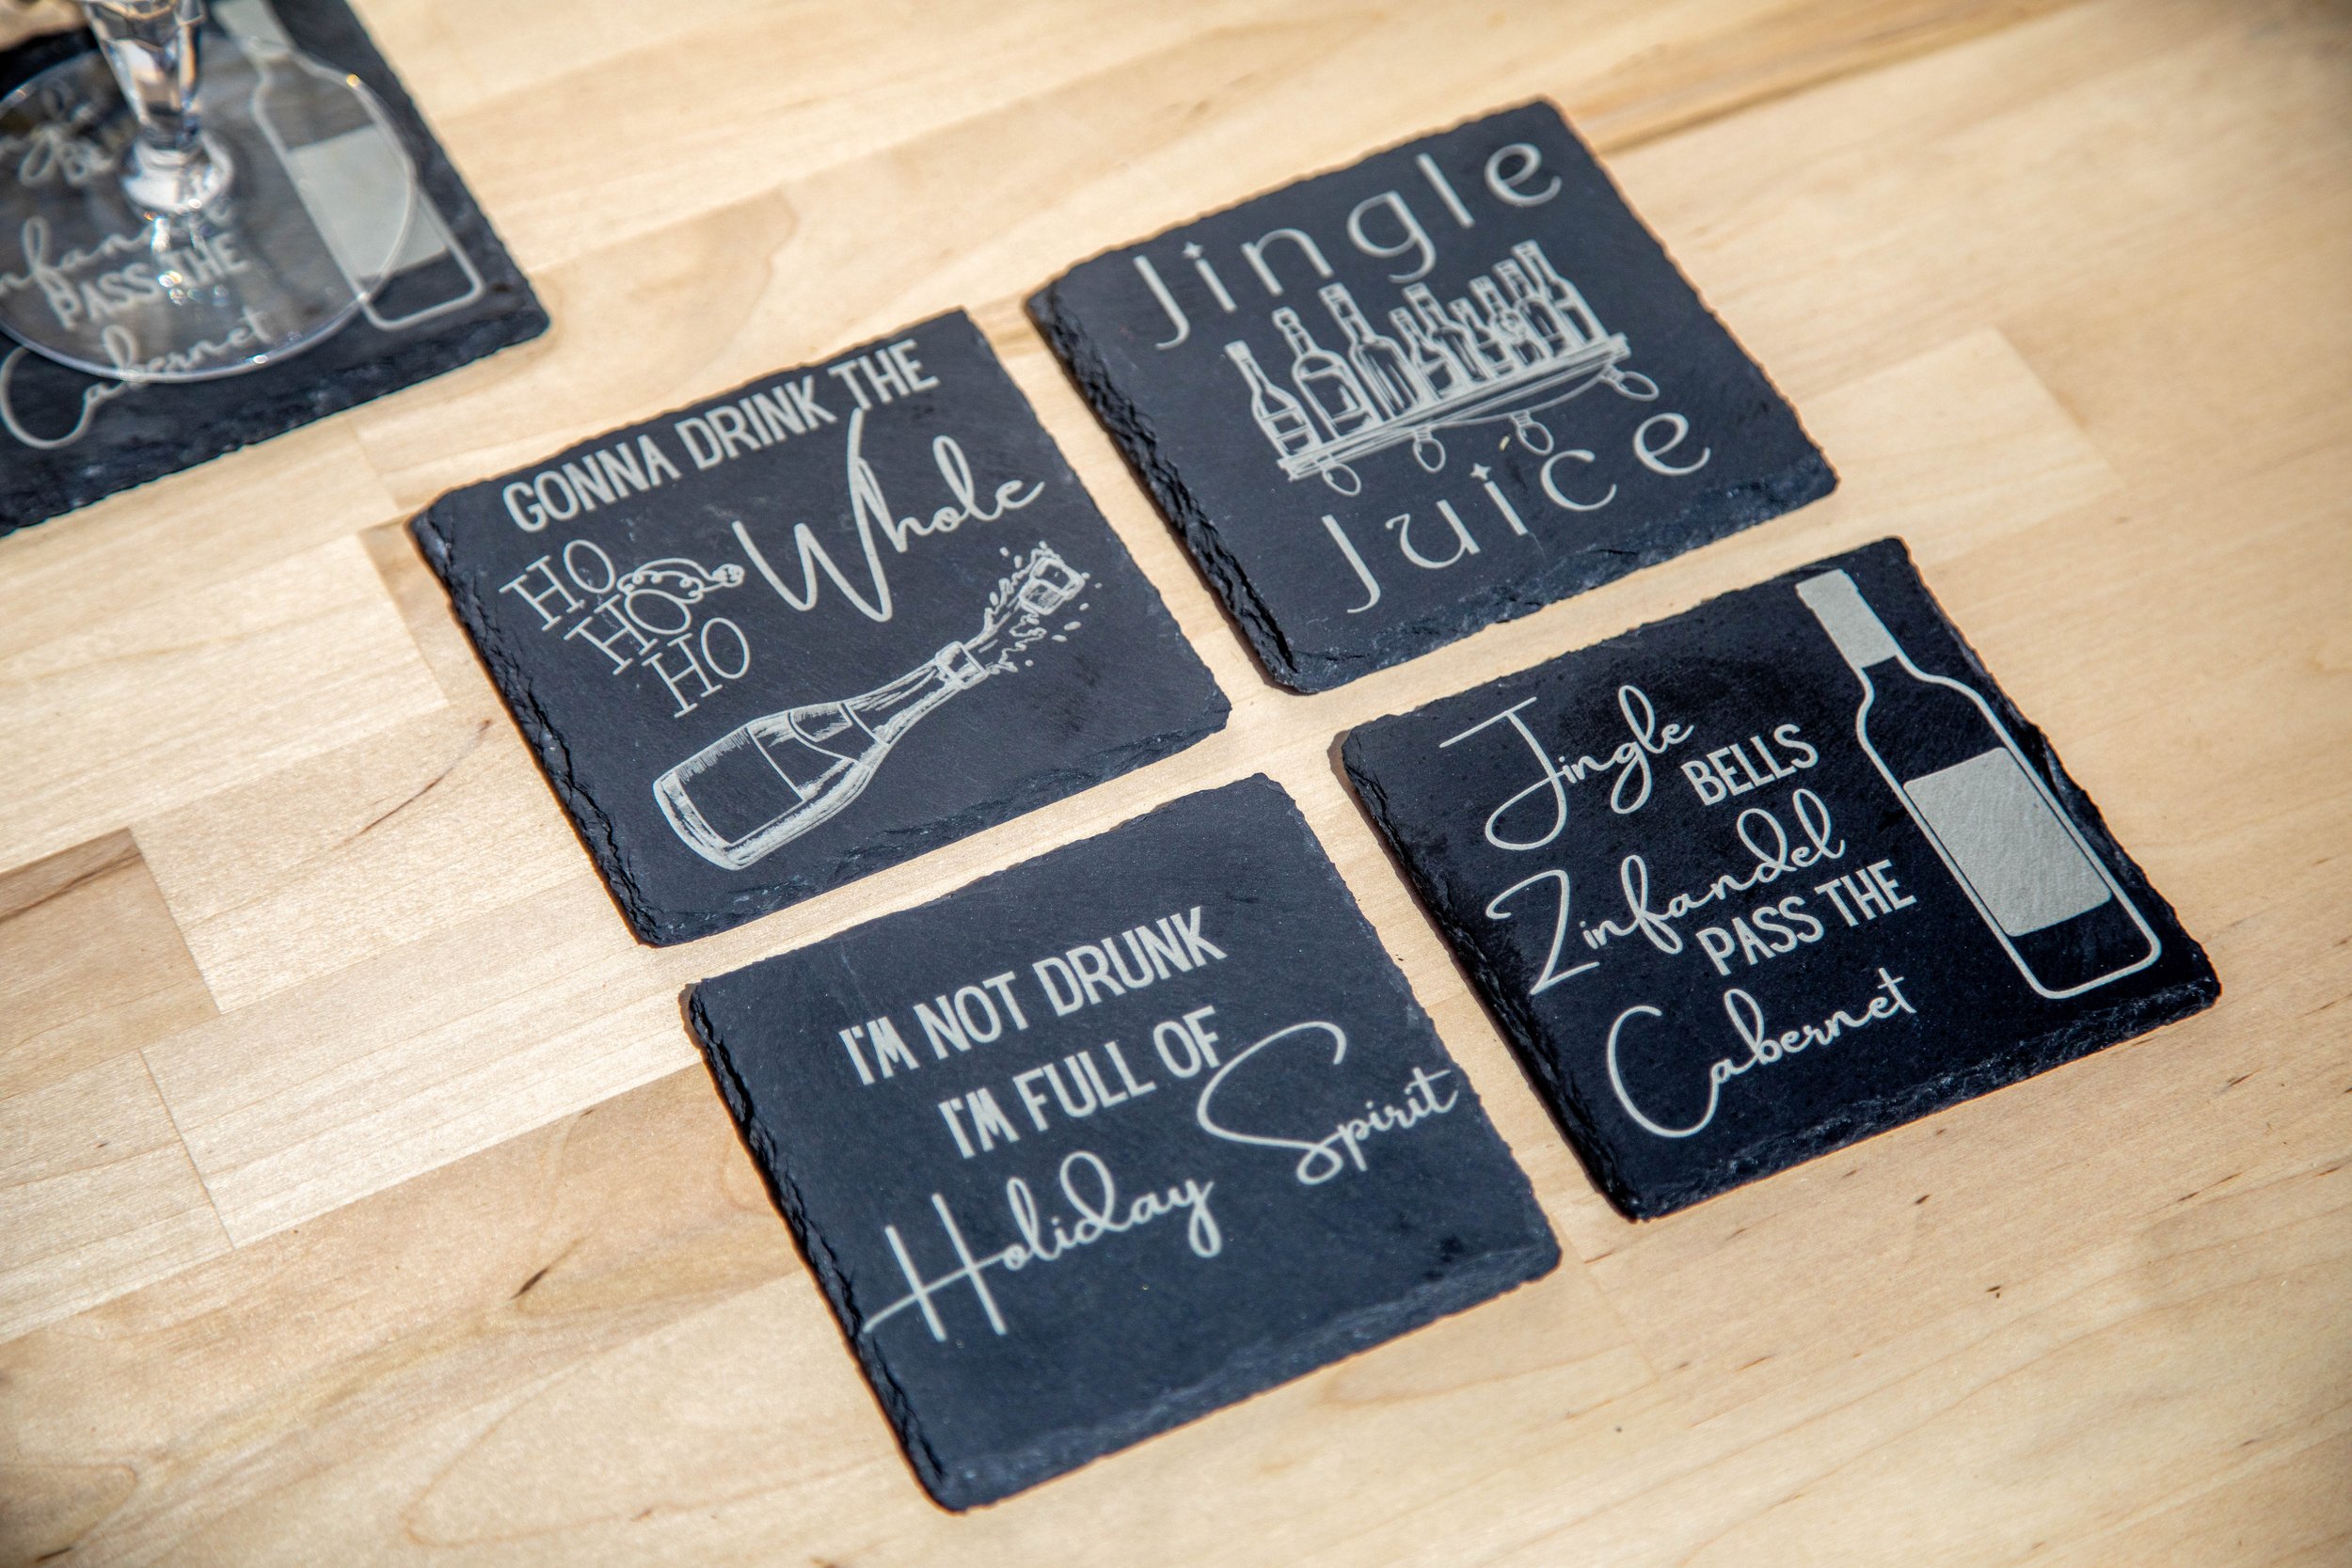 PASS THE
Cabernet
Jingle
Juice
GONNA DRINK THE
Whole
HO
HO
HO
Jingle
BELLS
Zinfandel
PASS THE
Cabernet
I'M NOT DRUNK
I'M FULL OF
Holiday Spirit